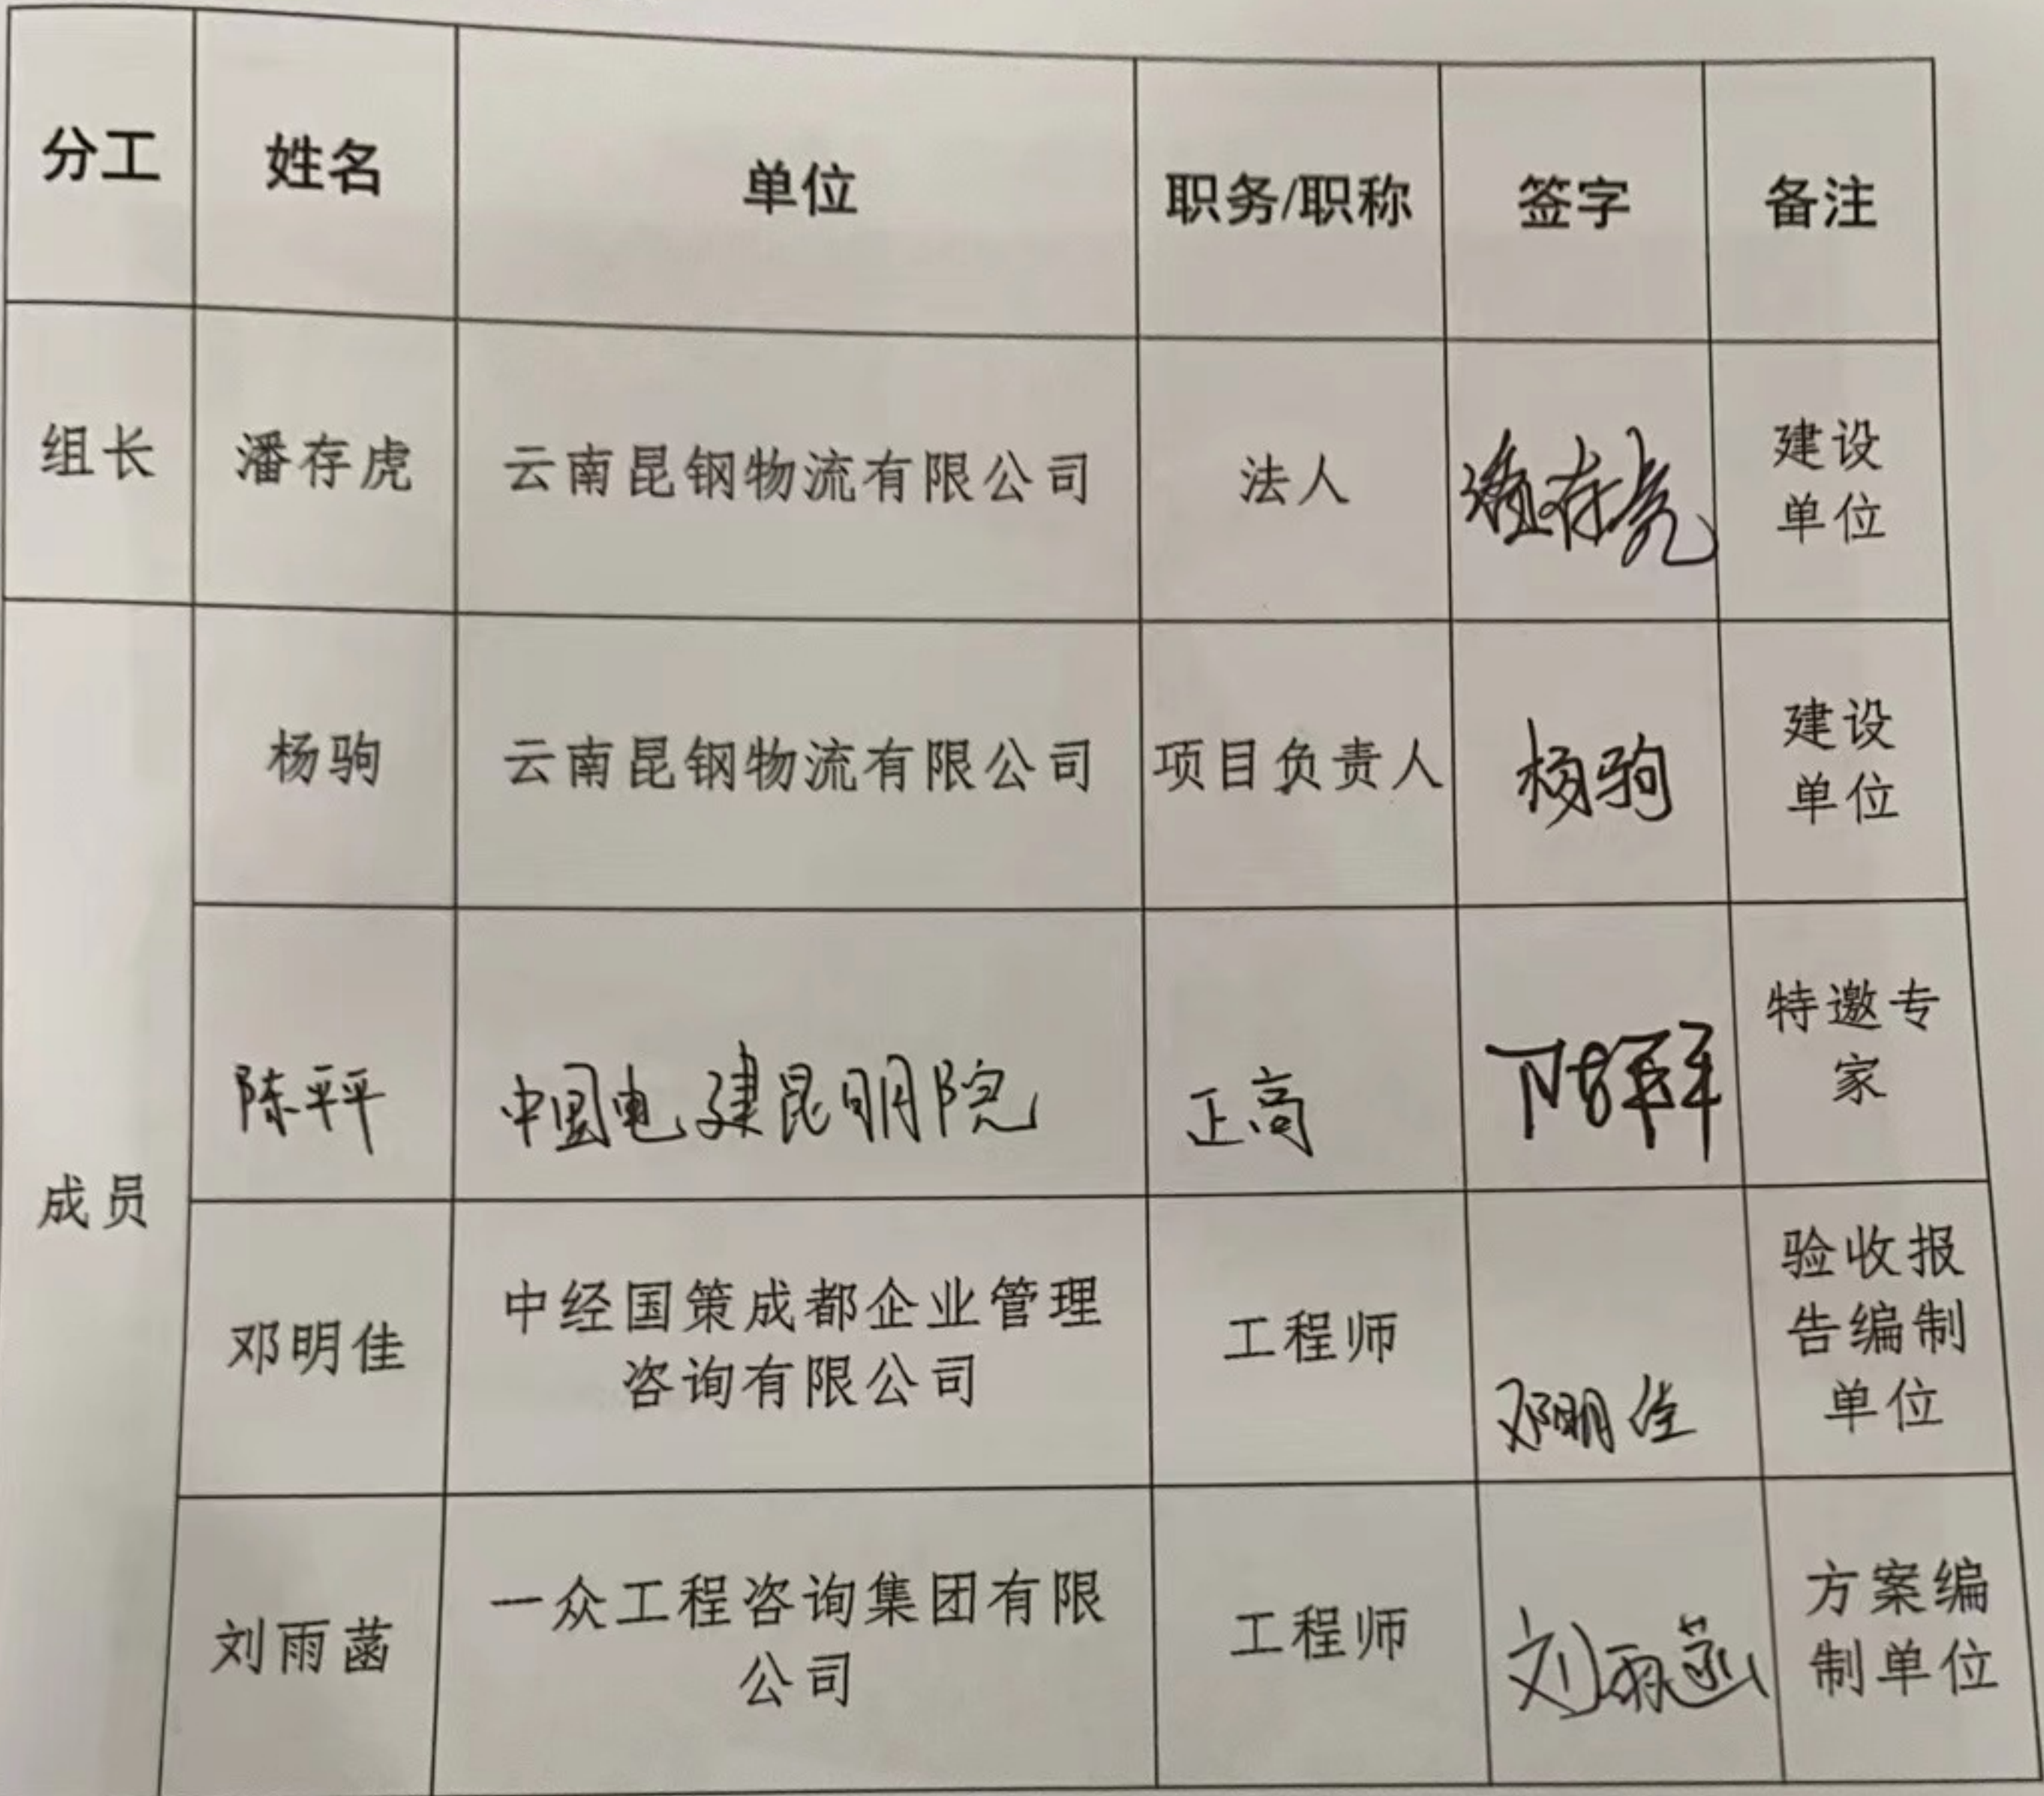 分工 姓名 单位 职务/职称 签字 备注
组长 潘存虎 云南昆钢物流有限公司 法人 潘存虎 建设
单位
成员
杨驹 云南昆钢物流有限公司 项目负责人 杨驹 建设
单位
陈平平 中国电建昆明院 正高 特邀专
家
邓明佳 中经国策成都企业管理
咨询有限公司 工程师 邓明佳 验收报
告编制
单位
刘雨菡 一众工程咨询集团有限
公司 工程师 刘雨菡 方案编
制单位